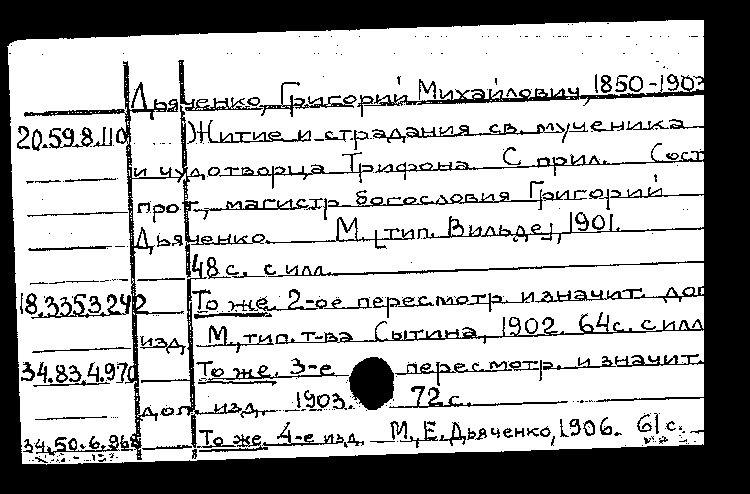 Дьяченко, Григорий Михайлович, 1850-1903
20.59.8.110 Житие и страдания св. мученика
и чудотворца Трифона. С прил. Сост
прот., магистр богословия Григорий
Дьяченко. М. [тип. Вильде], 1901.
48 с. с илл.
18.335.3.242 То же. 2-ое пересмотр. и значит. доп
изд. М., тип. т-ва Сытина, 1902. 64 с. с илл
34.83.4.970 То же. 3-е пересмотр. и значит.
доп. изд. 1903. 72 с.
34.50.6.968 То же. 4-е изд. М., Е. Дьяченко, 1906. 61 с.